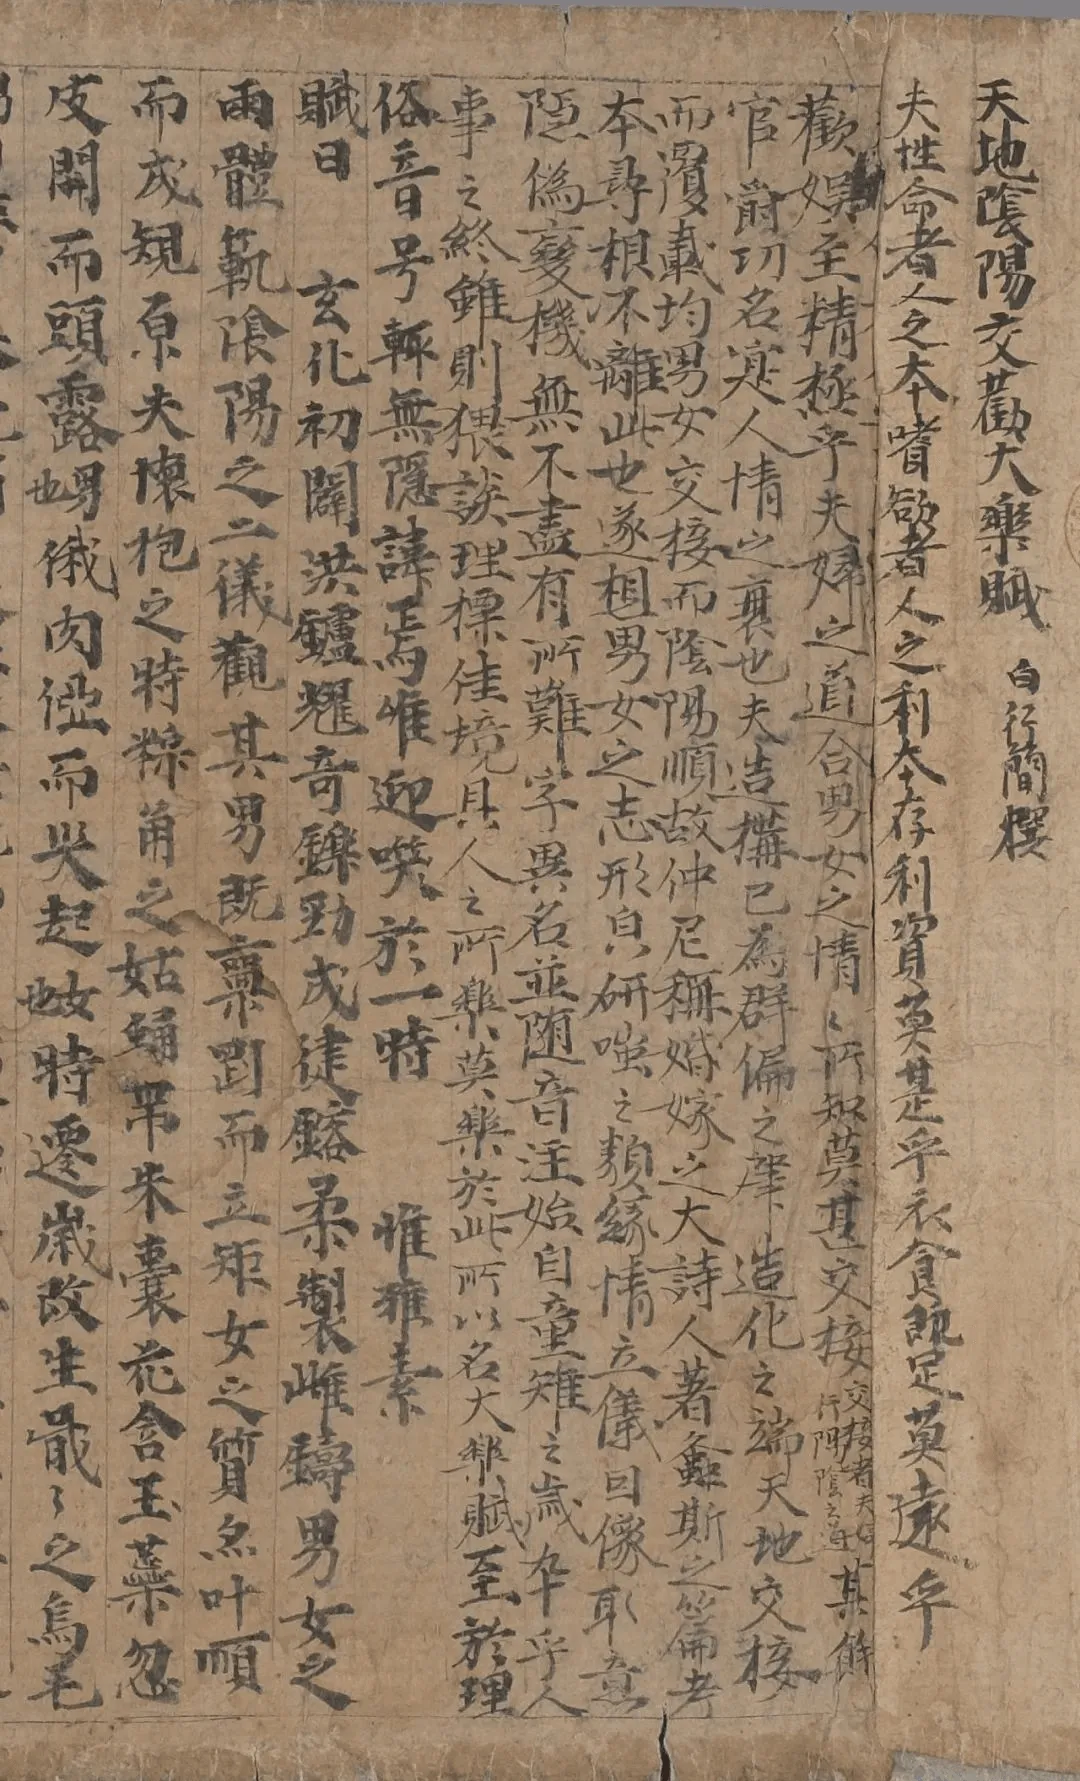 天地隂陽交歡大樂賦　白行簡撰
夫性命者人之本嗜欲者人之利本存利資莫甚乎衣食既足莫遠乎
歡娱至精極乎夫婦之道合男女之情〻所知莫甚交接交接者夫婦行陽隂之道其餘
官爵功名寔人情之衰也夫造構已為群偏之肇造化之端天地交接
而覆載均男女交接而隂陽順故仲尼稱婚嫁之大詩人著螽斯之篇考
本尋根不離此也遂想男女之志形皃妍嗤之類緣情立儀因像取意
隠偽變機無不盡有所難字異名並随音注始自童稚之歲卒乎人
事之終雖則猥談理標佳境具人之所樂莫樂於此所以名大樂賦至於俚
俗音号輙無隠諱焉惟迎笑於一時　惟雅素
賦曰　玄化初闢洪鑪耀奇鑠勁成徤鎔柔製雌鑄男女之
兩體範隂陽之二儀觀其男既禀剄而立矩女之質亦叶順
而成規原夫懷抱之時總角之始蛹帶朱囊花含玉蘂忽
皮開而頭露也男俄肉而突起也女時遷歲改生戢〻之烏毛